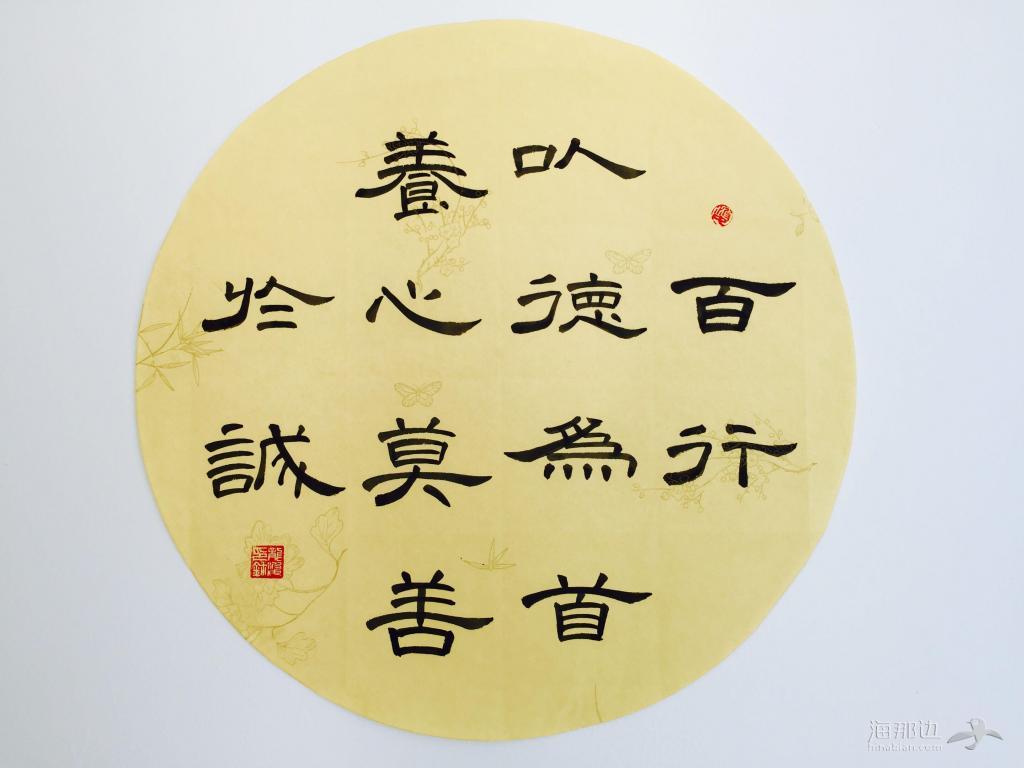 百行
以德為首
養心莫善
於誠
海那边
hinabian.com